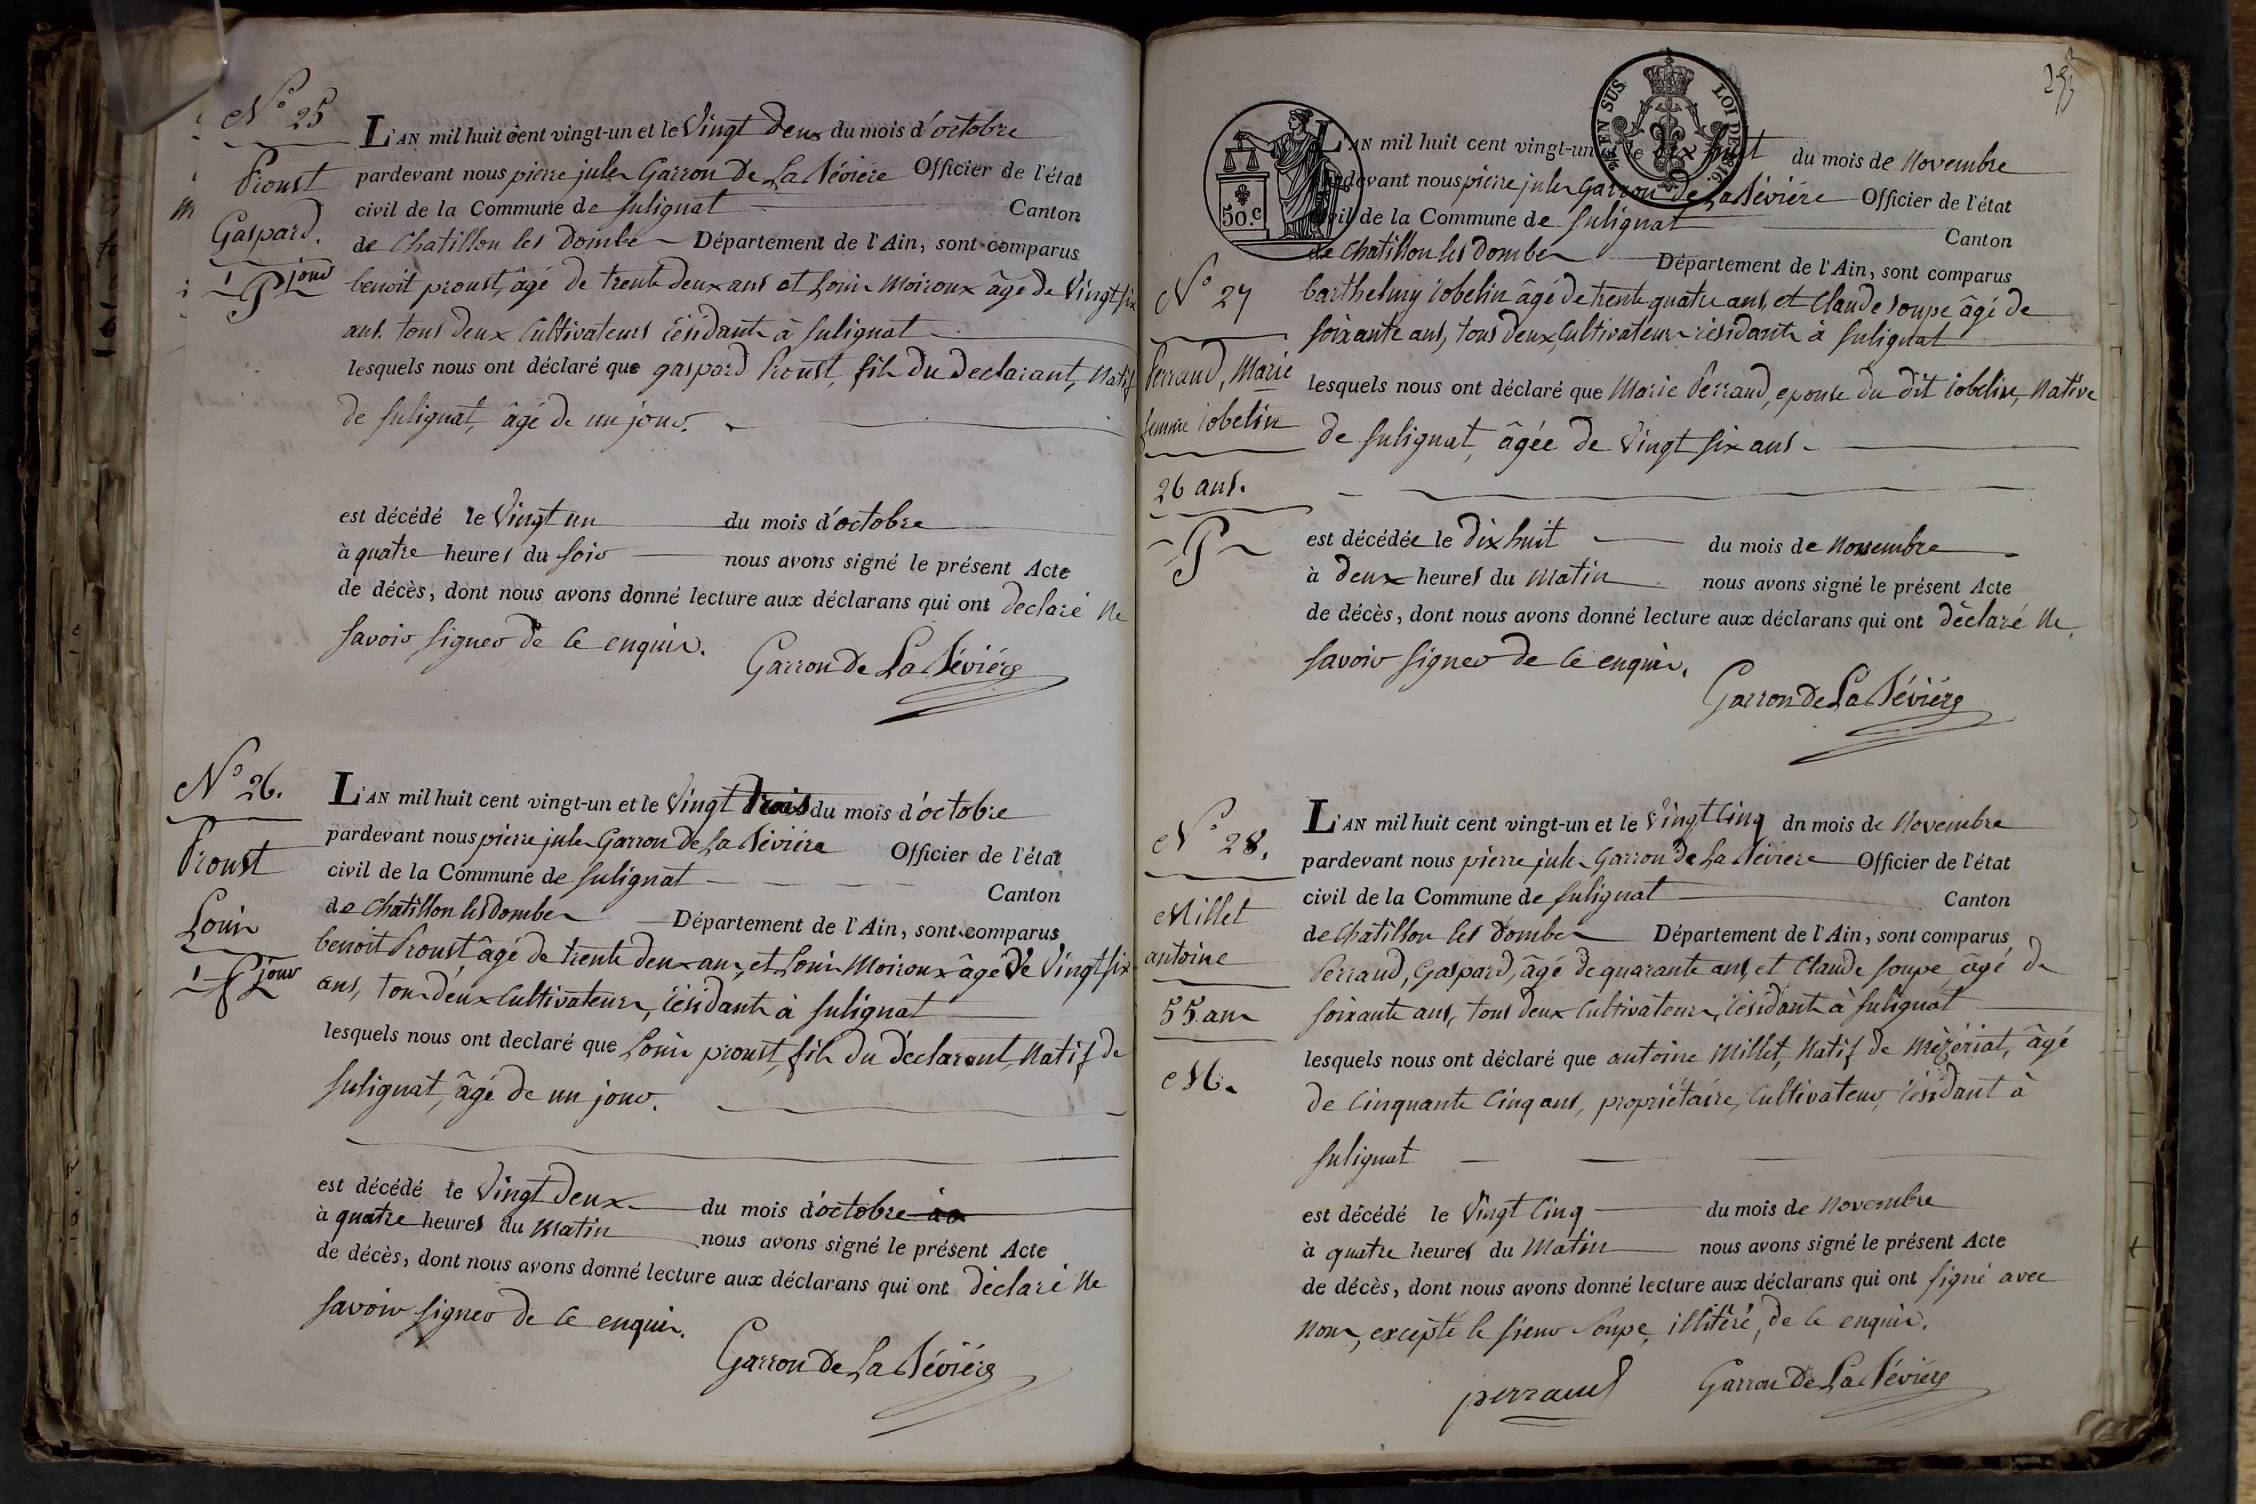 N.° 25
Proust
Gaspard.
1 jour
L'AN mil huit cent vingt-un et le Vingt deux du mois d'octobre
pardevant nous pierre jules Garron de La Bévière Officier de l'état
civil de la Commune de Sulignat Canton
de Chatillon les Dombe Département de l'Ain, sont comparus
benoit proust, âgé de trente deux ans et Louis Moiroux âgé de Vingt six
ans. tous deux Cultivateurs résidants à Sulignat
lesquels nous ont déclaré que gaspard Proust, fils du declarant, Natif
de Sulignat, âgé de un jour.
est décédé le Vingt un du mois d'octobre
à quatre heures du soir nous avons signé le présent Acte
de décès, dont nous avons donné lecture aux déclarans qui ont declaré Ne
savoir signer de ce enquis.
Garron de La Bévière
N° 26.
Proust
Louis
1 jour
L'AN mil huit cent vingt-un et le Vingt trois du mois d'octobre
pardevant nous pierre jules Garron de La Bévière Officier de l'état
civil de la Commune de Sulignat Canton
de Chatillon les Dombes Département de l'Ain, sont comparus
benoit Proust âgé de trente deux ans, et Louis Moiroux âgé de Vingt six
ans, tous deux Cultivateurs, résidants à Sulignat
lesquels nous ont declaré que Louis proust, fils du déclarant, Natif de
Sulignat, âgé de un jour.
est décédé le Vingt deux du mois d'octobre
à quatre heures du Matin nous avons signé le présent Acte
de décès, dont nous avons donné lecture aux déclarans qui ont déclaré Ne
savoir signer de ce enquis.
Garron de La Bévière
50.C
EN SUS LOI DE 1816.
N° 27
Perraud, Marie
femme Jobelin
26 ans.
L'AN mil huit cent vingt-un et le dix huit du mois de Novembre
pardevant nous pierre jules Garron de La Bévière Officier de l'état
civil de la Commune de Sulignat Canton
de Chatillon les Dombes Département de l'Ain, sont comparus
barthelmy Jobelin âgé de trente quatre ans, et Claude Soupe âgé de
soixante ans, tous deux Cultivateurs résidants à Sulignat
lesquels nous ont déclaré que Marie Perraud, epouse du dit Jobelin, Native
de Sulignat, âgée de Vingt six ans
est décédée le Dix huit du mois de Novembre
à deux heures du Matin nous avons signé le présent Acte
de décès, dont nous avons donné lecture aux déclarans qui ont déclaré Ne
savoir signer de ce enquis.
Garron de La Bévière
N° 28.
Millet
antoine
55 ans
M.
L'AN mil huit cent vingt-un et le Vingt Cinq du mois de Novembre
pardevant nous pierre jules Garron de La Bévière Officier de l'état
civil de la Commune de Sulignat Canton
de Chatillon les Dombes Département de l'Ain, sont comparus
Perraud, Gaspard, âgé de quarante ans, et Claude Soupe âgé de
soixante ans, tous deux Cultivateurs, résidants à Sulignat
lesquels nous ont déclaré que antoine Millet, Natif de Mézériat, âgé
de Cinquante Cinq ans, propriétaire, Cultivateur, résidant à
Sulignat
est décédé le Vingt Cinq du mois de Novembre
à quatre heures du Matin nous avons signé le présent Acte
de décès, dont nous avons donné lecture aux déclarans qui ont signé avec
Nous, excepté le sieur Soupe, illitéré, de ce enquis.
perraud
Garron de La Bévière